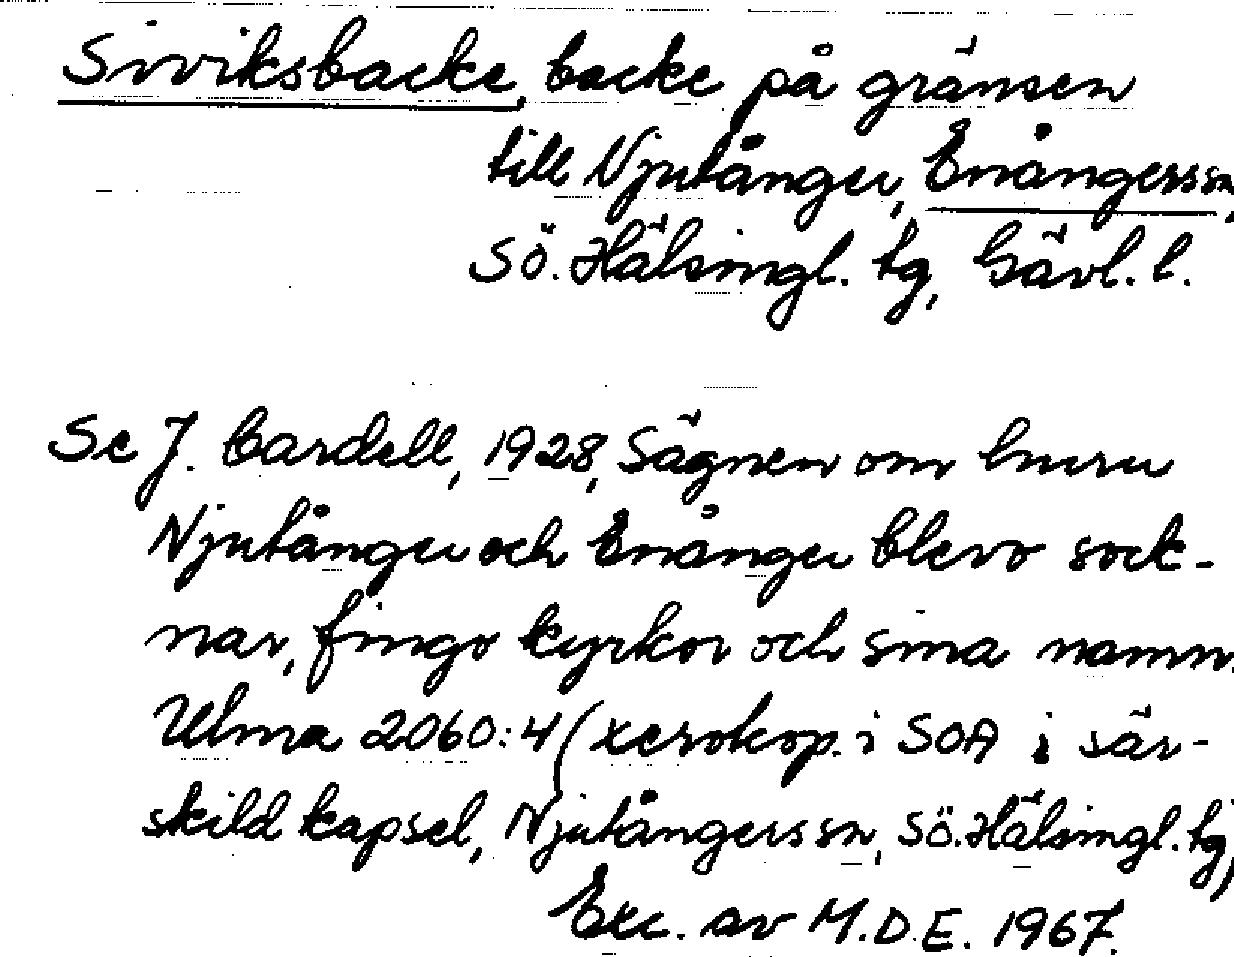 Siviksbacke, backe på gränsen
till Njutånger, Enångers sn,
Sö. Hälsingl. tg, Gävl. l.
Se J. Cardell, 1928, Sägnen om huru
Njutånger och Enånger blevo sock-
nar, fingo kyrkor och sina namn.
Ulma 2060:4 (xerokop. i SOA i sär-
skild kapsel, Njutångers sn, Sö. Hälsingl. tg)
Exc. av M.D.E. 1967.